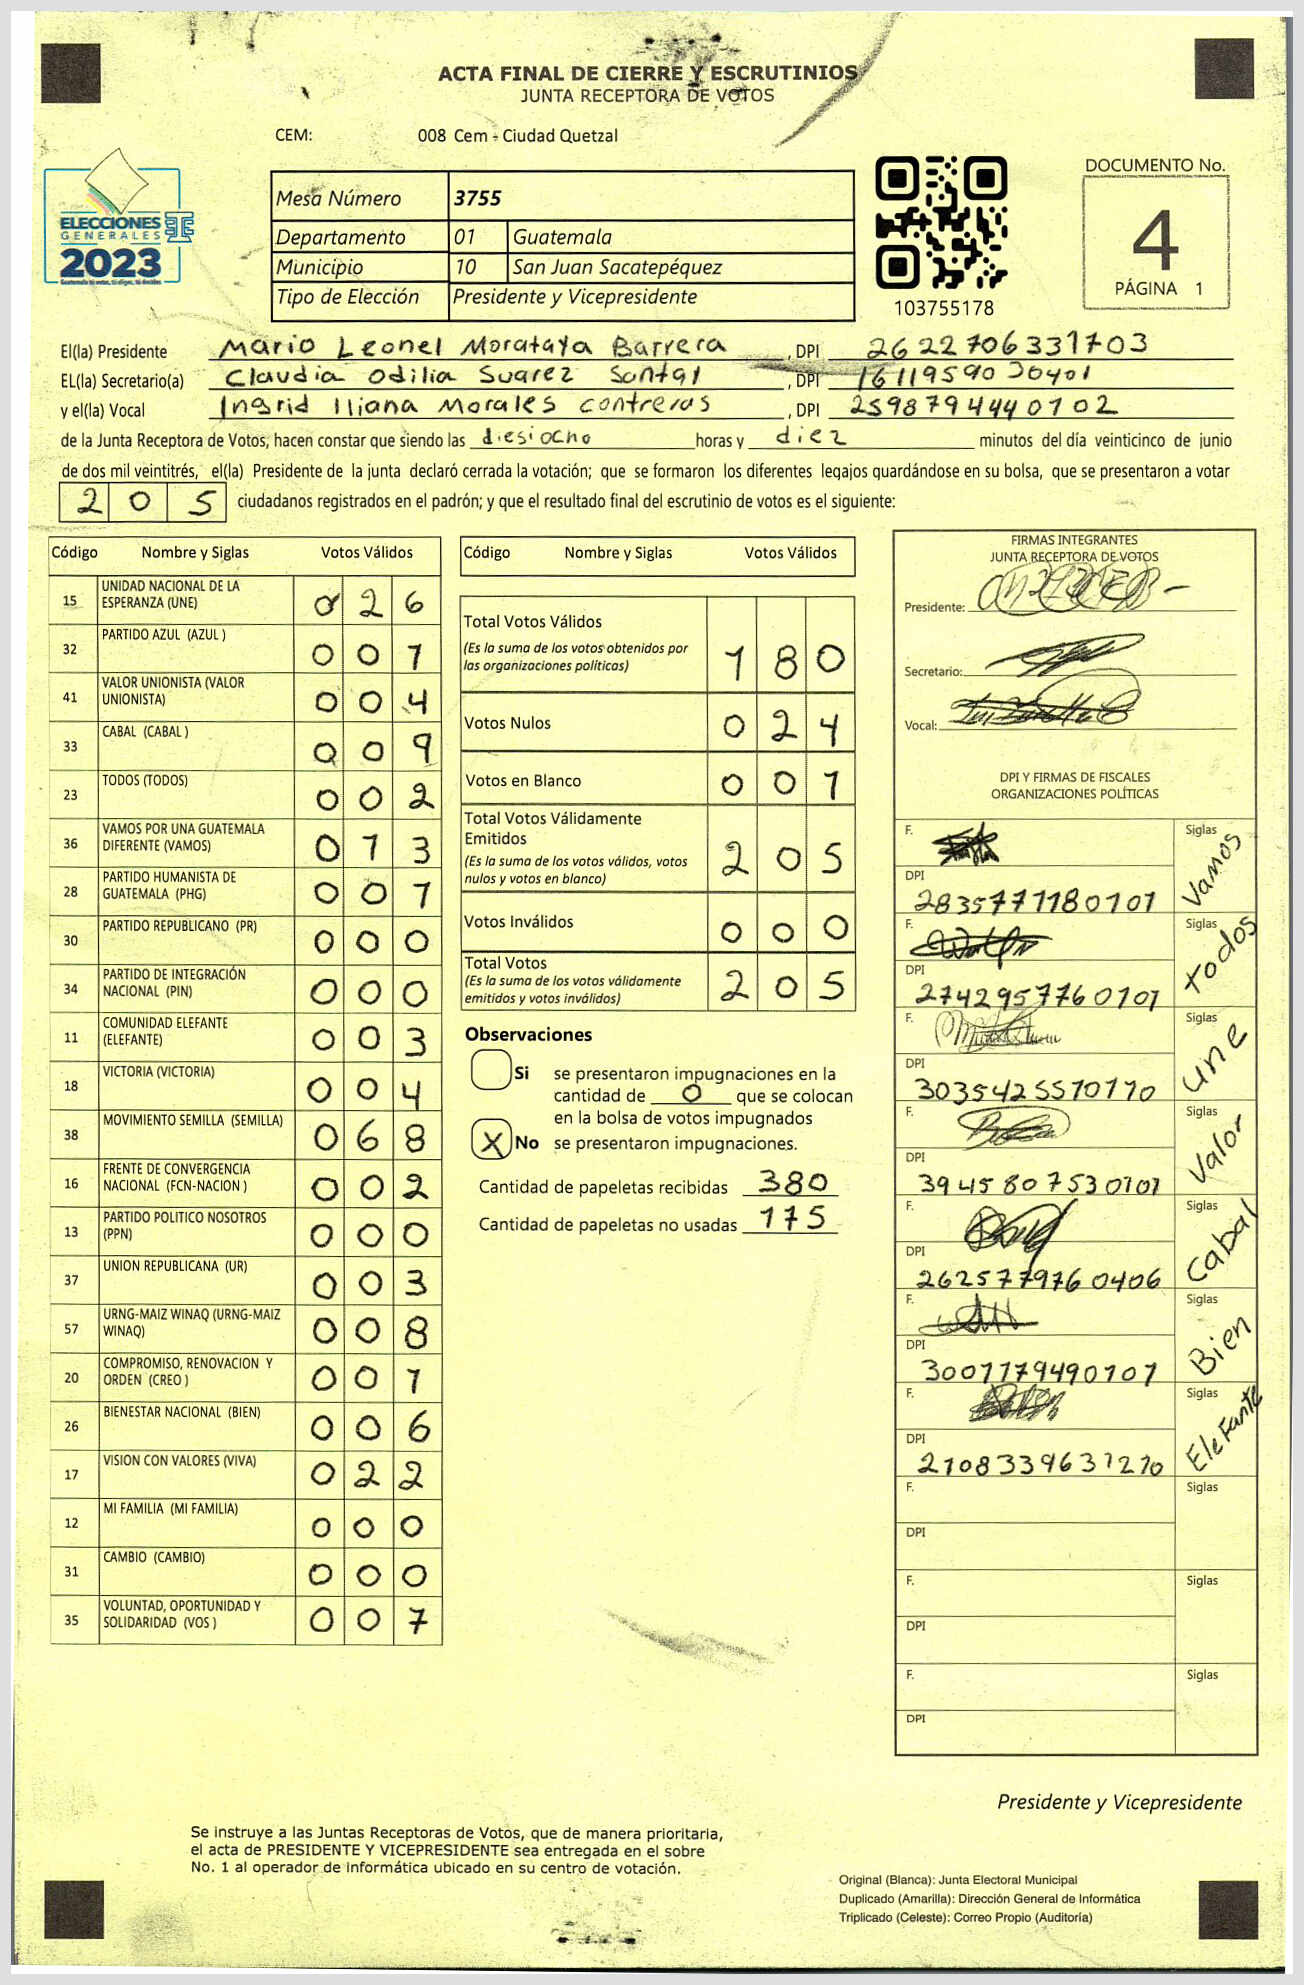 ACTA FINAL DE CIERRE Y ESCRUTINIOS
JUNTA RECEPTORA DE VOTOS
CEM: 008 Cem - Ciudad Quetzal
ELECCIONES
GENERALES
2023
Mesa Número 3755
Departamento 01 Guatemala
Municipio 10 San Juan Sacatepéquez
Tipo de Elección Presidente y Vicepresidente
103755178
DOCUMENTO No.
4
PÁGINA 1
El(la) Presidente Mario Leonel Morataya Barrera , DPI 2622706331703
EL(la) Secretario(a) Claudia Odilia Suarez , DPI
y el(la) Vocal Ingrid Iliana Morales Contreras , DPI 2598794440102
de la Junta Receptora de Votos, hacen constar que siendo las diesiocho horas y diez minutos del día veinticinco de junio
de dos mil veintitrés, el(la) Presidente de la junta declaró cerrada la votación; que se formaron los diferentes legajos guardándose en su bolsa, que se presentaron a votar
2 0 5 ciudadanos registrados en el padrón; y que el resultado final del escrutinio de votos es el siguiente:
Código Nombre y Siglas Votos Válidos
15 UNIDAD NACIONAL DE LA
ESPERANZA (UNE) 0 2 6
32 PARTIDO AZUL (AZUL ) 0 0 1
41 VALOR UNIONISTA (VALOR
UNIONISTA) 0 0 4
33 CABAL (CABAL ) 0 0 9
23 TODOS (TODOS) 0 0 2
36 VAMOS POR UNA GUATEMALA
DIFERENTE (VAMOS) 0 1 3
28 PARTIDO HUMANISTA DE
GUATEMALA (PHG) 0 0 1
30 PARTIDO REPUBLICANO (PR) 0 0 0
34 PARTIDO DE INTEGRACIÓN
NACIONAL (PIN) 0 0 0
11 COMUNIDAD ELEFANTE
(ELEFANTE) 0 0 3
18 VICTORIA (VICTORIA) 0 0 4
38 MOVIMIENTO SEMILLA (SEMILLA) 0 6 8
16 FRENTE DE CONVERGENCIA
NACIONAL (FCN-NACION ) 0 0 2
13 PARTIDO POLITICO NOSOTROS
(PPN) 0 0 0
37 UNION REPUBLICANA (UR) 0 0 3
57 URNG-MAIZ WINAQ (URNG-MAIZ
WINAQ) 0 0 8
20 COMPROMISO, RENOVACION Y
ORDEN (CREO ) 0 0 1
26 BIENESTAR NACIONAL (BIEN) 0 0 6
17 VISION CON VALORES (VIVA) 0 2 2
12 MI FAMILIA (MI FAMILIA) 0 0 0
31 CAMBIO (CAMBIO) 0 0 0
35 VOLUNTAD, OPORTUNIDAD Y
SOLIDARIDAD (VOS ) 0 0 7
Código Nombre y Siglas Votos Válidos
Total Votos Válidos
(Es la suma de los votos obtenidos por
las organizaciones políticas) 1 8 0
Votos Nulos 0 2 4
Votos en Blanco 0 0 1
Total Votos Válidamente
Emitidos
(Es la suma de los votos válidos, votos
nulos y votos en blanco) 2 0 5
Votos Inválidos 0 0 0
Total Votos
(Es la suma de los votos válidamente
emitidos y votos inválidos) 2 0 5
Observaciones
Si se presentaron impugnaciones en la
cantidad de 0 que se colocan
en la bolsa de votos impugnados
X No se presentaron impugnaciones.
Cantidad de papeletas recibidas 380
Cantidad de papeletas no usadas 175
FIRMAS INTEGRANTES
JUNTA RECEPTORA DE VOTOS
Presidente:
Secretario:
Vocal:
DPI Y FIRMAS DE FISCALES
ORGANIZACIONES POLÍTICAS
F. Siglas Vamos
DPI 2835771180101
F. Siglas todos
DPI 2742957760101
F. Siglas Une
DPI 3035425570110
F. Siglas Valor
DPI 3945807530101
F. Siglas Cabal
DPI 2625779760406
F. Siglas Bien
DPI 3001779490101
F. Siglas Elefante
DPI 2108339631210
F. Siglas
DPI
F. Siglas
DPI
F. Siglas
DPI
Presidente y Vicepresidente
Se instruye a las Juntas Receptoras de Votos, que de manera prioritaria,
el acta de PRESIDENTE Y VICEPRESIDENTE sea entregada en el sobre
No. 1 al operador de informática ubicado en su centro de votación.
Original (Blanca): Junta Electoral Municipal
Duplicado (Amarilla): Dirección General de Informática
Triplicado (Celeste): Correo Propio (Auditoría)